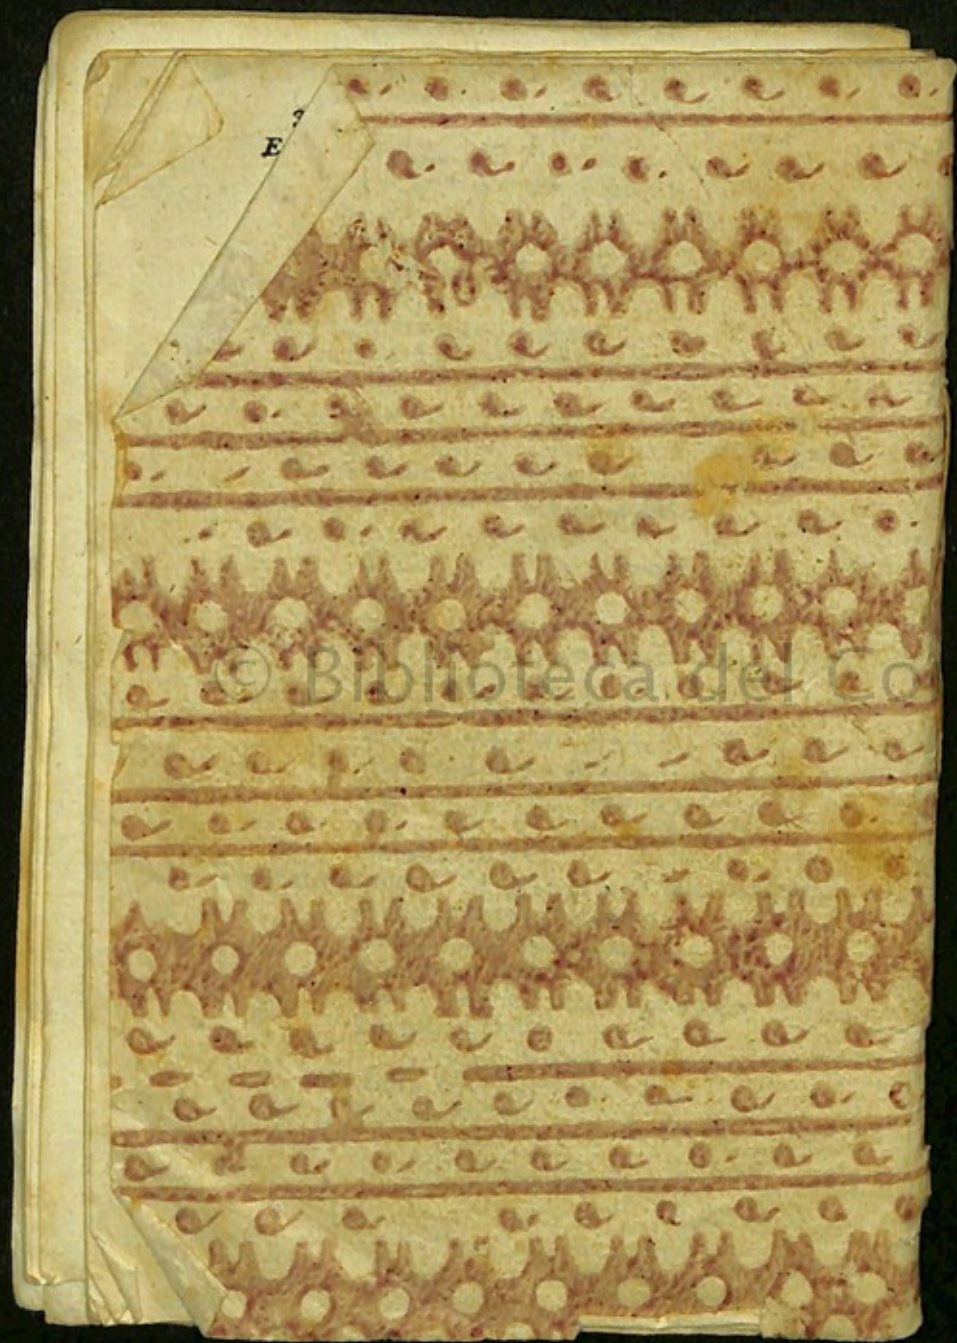 E
© Biblioteca del Co